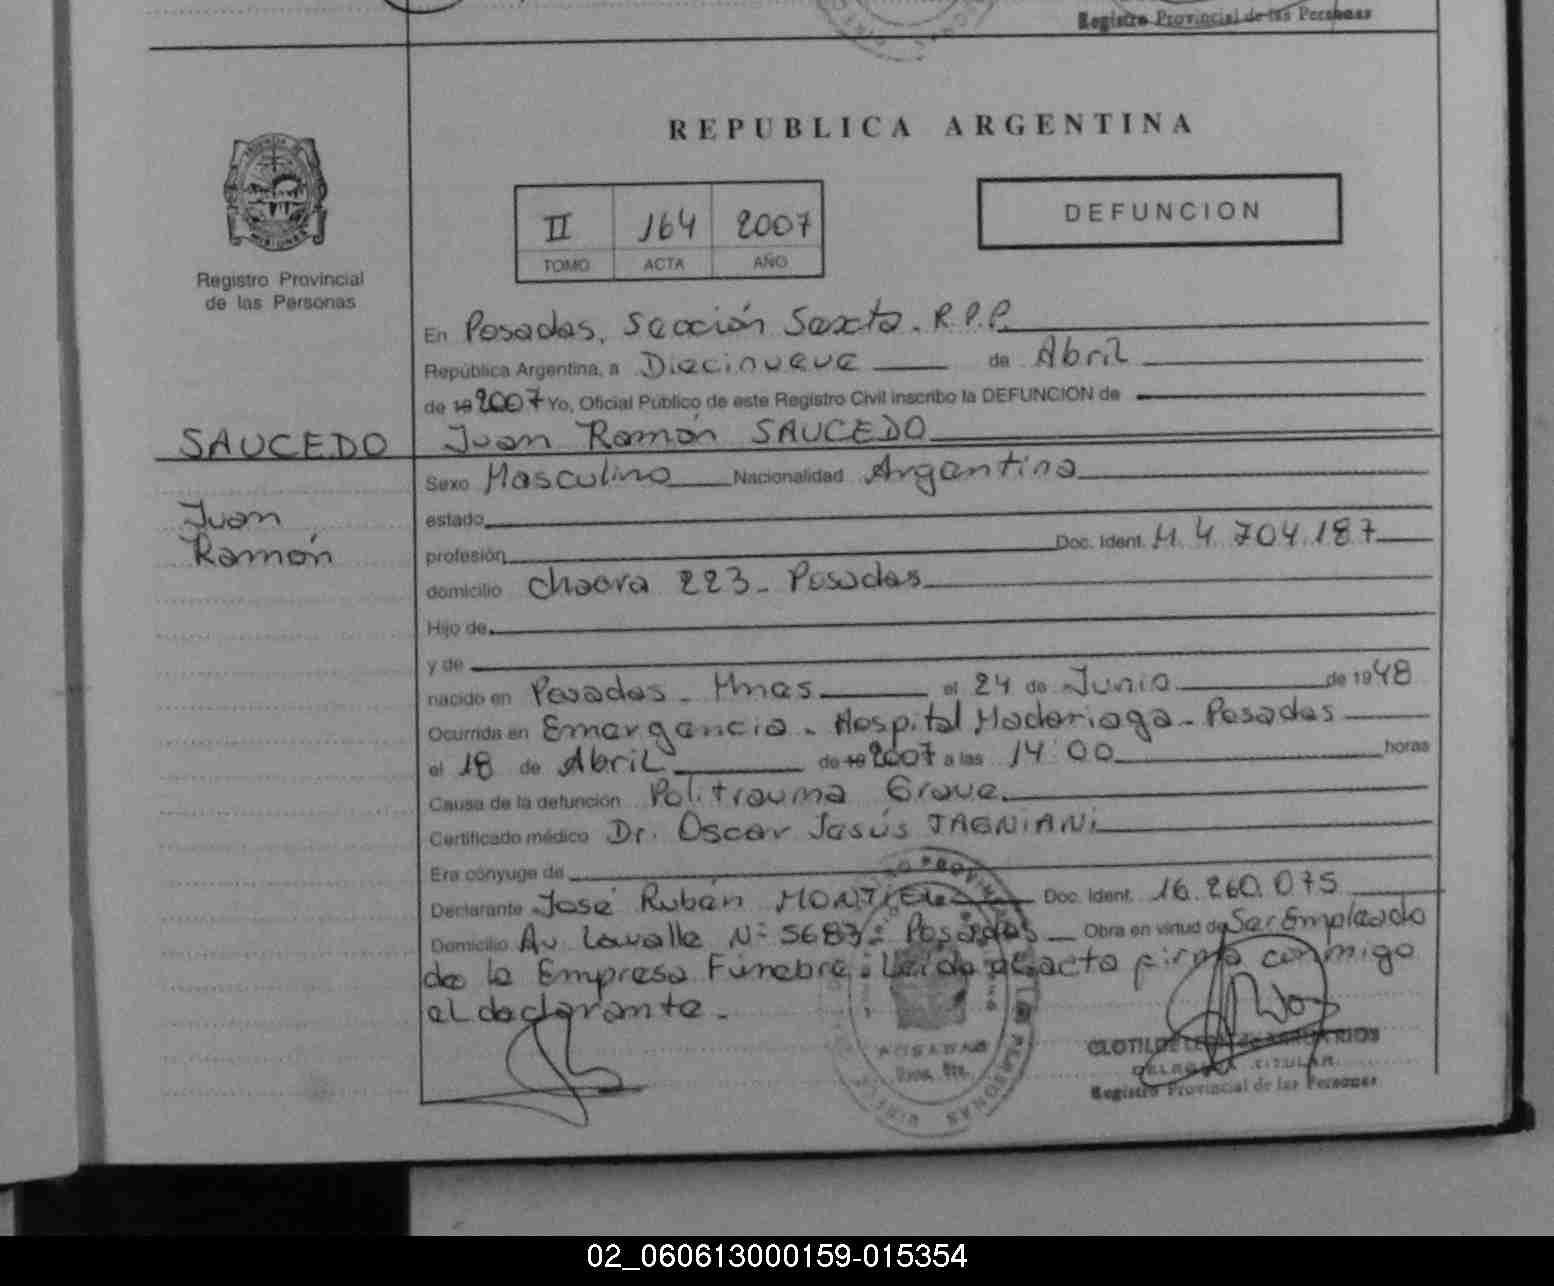 Registro Provincial de las Personas
REPUBLICA ARGENTINA
II 164 2007
TOMO ACTA AÑO
DEFUNCION
Registro Provincial
de las Personas
En Posadas, Sección Sexta. R.P.P.
República Argentina, a Diecinueve de Abril
de 19 2007 Yo, Oficial Público de este Registro Civil inscribo la DEFUNCION de
SAUCEDO Juan Ramón SAUCEDO
Sexo Masculino Nacionalidad Argentina
Juan
estado
Ramón
profesión Doc. Ident. M. 4.704.187
domicilio Chacra 223 - Posadas
Hijo de
y de
nacido en Posadas - Mnes el 24 de Junio de 1948
Ocurrida en Emergencia - Hospital Madariaga - Posadas
el 18 de Abril de 19 2007 a las 14:00 horas
Causa de la defunción Politrauma Grave
Certificado médico Dr. Oscar Jesús JAGNIANI
Era cónyuge de
Declarante José Rubén MONTIEL Doc. Ident. 16.260.075
Domicilio Av. Lavalle Nº 5683 - Posadas Obra en virtud de Ser Empleado
de la Empresa Fúnebre. Leída el acta firma conmigo
el declarante.
POSADAS
CLOTILDE
TITULAR
Registro Provincial de las Personas
02_060613000159-015354